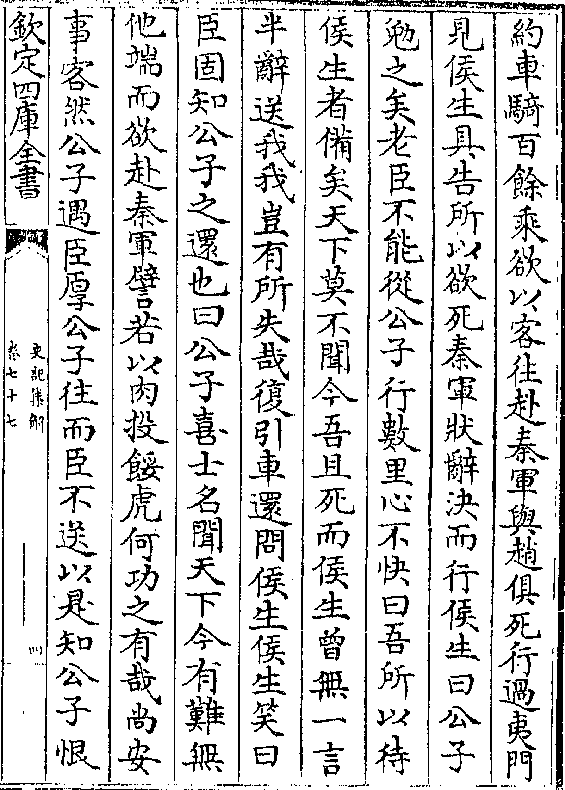 約車騎百餘乘欲以客往赴秦軍與趙俱死行過夷門
見侯生具告所以欲死秦軍狀辭決而行侯生曰公子
勉之矣老臣不能從公子行數里心不快曰吾所以待
侯生者備矣天下莫不聞今吾且死而侯生曾無一言
半辭送我我豈有所失哉復引車還問侯生侯生笑曰
臣固知公子之還也曰公子喜士名聞天下今有難無
他端而欲赴秦軍譬若以肉投餒虎何功之有哉尚安
事客然公子遇臣厚公子往而臣不送以是知公子恨
欽定四庫全書
史記集解
卷七十七
四